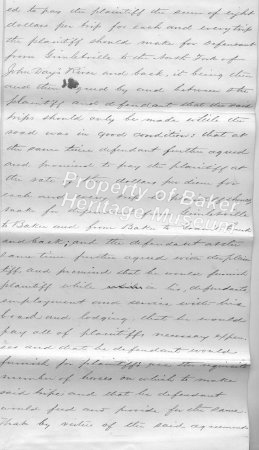 ed to pay the plaintiff the sum of eight
dollars per trip for each and every trip
the plaintiff should make for defendant
from to the North Fork of
John Day's River and back, it being then
and then agreed by and between the
plaintiff and defendant that the said
trips should only be made while the
road was in good condition; that at
the same time defendant further agreed
and promised to pay the plaintiff at
the rate of dollars per diem for
each and
make for
to Baker and from Baker to
and back; and the defendant at the
same time further agreed with the plain-
tiff and promised that he would furnish
plaintiff while in his, defendants
employment and service with his
board and lodging; that he would
pay all of plaintiffs necessary expen-
ses and that he defendant would
furnish for plaintiffs use the requisite
number of horses on which to make
said trips and that he defendant
would feed and provide for the same.
That by virtue of the said agreement
Property of Baker
Heritage Museum